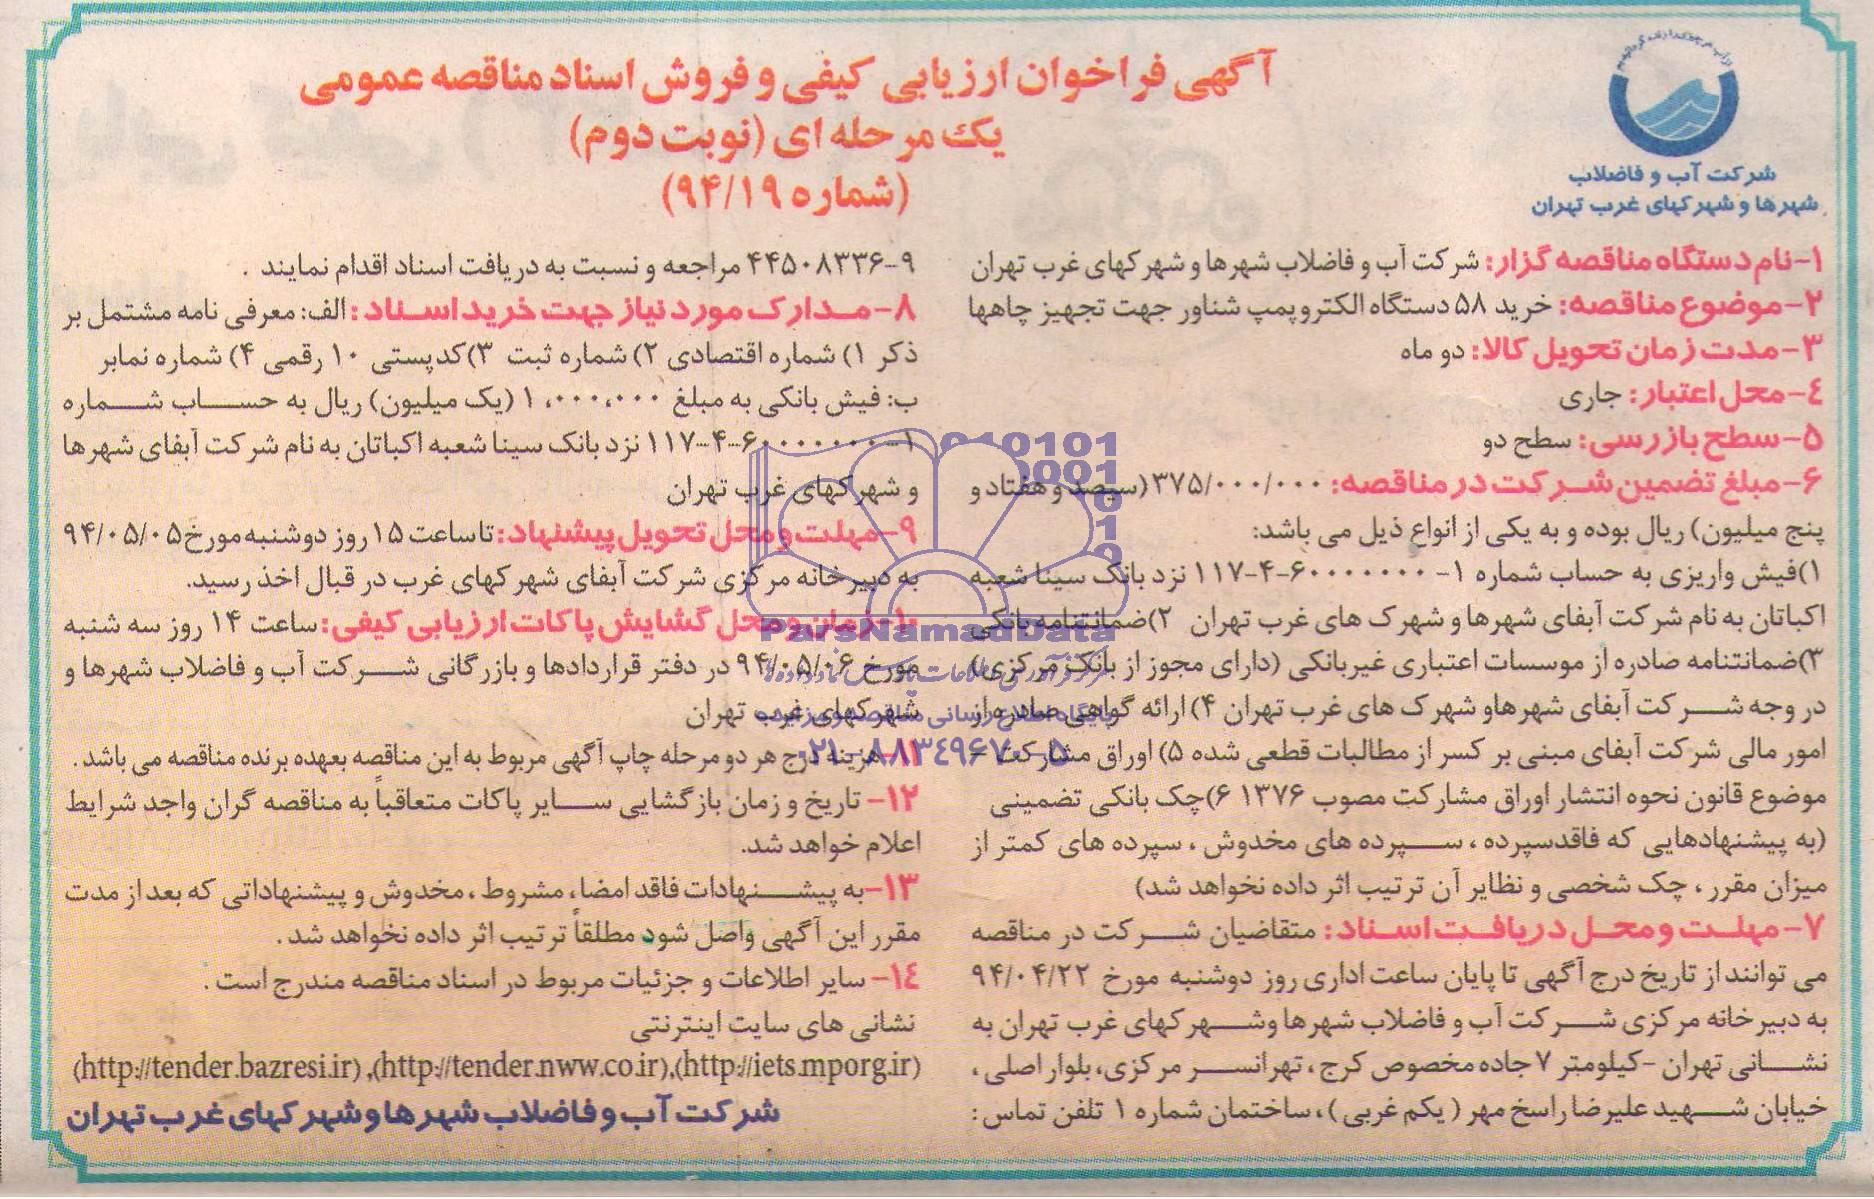 آگهی فراخوان ارزیابی کیفی و فروش اسناد مناقصه عمومی
یک مرحله ای (نوبت دوم)
(شماره ۹۴/۱۹)
شرکت آب و فاضلاب
شهرها و شهرکهای غرب تهران
۱-نام دستگاه مناقصه گزار: شرکت آب و فاضلاب شهرها و شهرکهای غرب تهران
۲-موضوع مناقصه: خرید ۵۸ دستگاه الکتروپمپ شناور جهت تجهیز چاهها
۳-مدت زمان تحویل کالا: دو ماه
۴-محل اعتبار: جاری
۵-سطح بازرسی: سطح دو
۶-مبلغ تضمین شرکت در مناقصه: ۳۷۵/۰۰۰/۰۰۰ (سیصد و هفتاد و
پنج میلیون) ریال بوده و به یکی از انواع ذیل می باشد:
۱)فیش واریزی به حساب شماره ۱-۶۰۰۰۰۰۰۰-۴-۱۱۷ نزد بانک سینا شعبه
اکباتان به نام شرکت آبفای شهرها و شهرک های غرب تهران ۲)ضمانتنامه بانکی
۳)ضمانتنامه صادره از موسسات اعتباری غیربانکی (دارای مجوز از بانک مرکزی)
در وجه شرکت آبفای شهرهاو شهرک های غرب تهران ۴)ارائه گواهی صادره از
امور مالی شرکت آبفای مبنی بر کسر از مطالبات قطعی شده ۵) اوراق مشارکت
موضوع قانون نحوه انتشار اوراق مشارکت مصوب ۱۳۷۶ ۶)چک بانکی تضمینی
(به پیشنهادهایی که فاقدسپرده ، سپرده های مخدوش ، سپرده های کمتر از
میزان مقرر ، چک شخصی و نظایر آن ترتیب اثر داده نخواهد شد)
۷- مهلت و محل دریافت اسناد: متقاضیان شرکت در مناقصه
می توانند از تاریخ درج آگهی تا پایان ساعت اداری روز دوشنبه مورخ ۹۴/۰۴/۲۲
به دبیرخانه مرکزی شرکت آب و فاضلاب شهرها وشهرکهای غرب تهران به
نشانی تهران -کیلومتر ۷ جاده مخصوص کرج ، تهرانسر مرکزی، بلوار اصلی ،
خیابان شهید علیرضا راسخ مهر ( یکم غربی ) ، ساختمان شماره ۱ تلفن تماس :
۹-۴۴۵۰۸۳۳۶ مراجعه و نسبت به دریافت اسناد اقدام نمایند .
۸-مدارک مورد نیاز جهت خرید اسناد : الف: معرفی نامه مشتمل بر
ذکر ۱) شماره اقتصادی ۲) شماره ثبت ۳)کدپستی ۱۰ رقمی ۴) شماره نمابر
ب: فیش بانکی به مبلغ ۱،۰۰۰،۰۰۰ (یک میلیون) ریال به حساب شماره
۱-۶۰۰۰۰۰۰۰-۴-۱۱۷ نزد بانک سینا شعبه اکباتان به نام شرکت آبفای شهرها
و شهرکهای غرب تهران
۹-مهلت و محل تحویل پیشنهاد: تاساعت ۱۵ روز دوشنبه مورخ ۹۴/۰۵/۰۵
به دبیرخانه مرکزی شرکت آبفای شهرکهای غرب در قبال اخذ رسید.
۱۰-زمان و محل گشایش پاکات ارزیابی کیفی: ساعت ۱۴ روز سه شنبه
مورخ ۹۴/۰۵/۰۶ در دفتر قراردادها و بازرگانی شرکت آب و فاضلاب شهرها و
شهرکهای غرب تهران
۱۱- هزینه درج هر دو مرحله چاپ آگهی مربوط به این مناقصه بعهده برنده مناقصه می باشد .
۱۲- تاریخ و زمان بازگشایی سایر پاکات متعاقباً به مناقصه گران واجد شرایط
اعلام خواهد شد.
۱۳-به پیشنهادات فاقد امضا، مشروط ، مخدوش و پیشنهاداتی که بعد از مدت
مقرر این آگهی واصل شود مطلقاً ترتیب اثر داده نخواهد شد .
۱۴- سایر اطلاعات و جزئیات مربوط در اسناد مناقصه مندرج است .
نشانی های سایت اینترنتی
(http://tender.bazresi.ir) ,(http://tender.nww.co.ir),(http://iets.mporg.ir)
شرکت آب و فاضلاب شهرها و شهرکهای غرب تهران
ParsNamadData
پایگاه اطلاع رسانی مناقصه و مزایده
۰۲۱-۸۸۳۴۹۶۷۰-۵